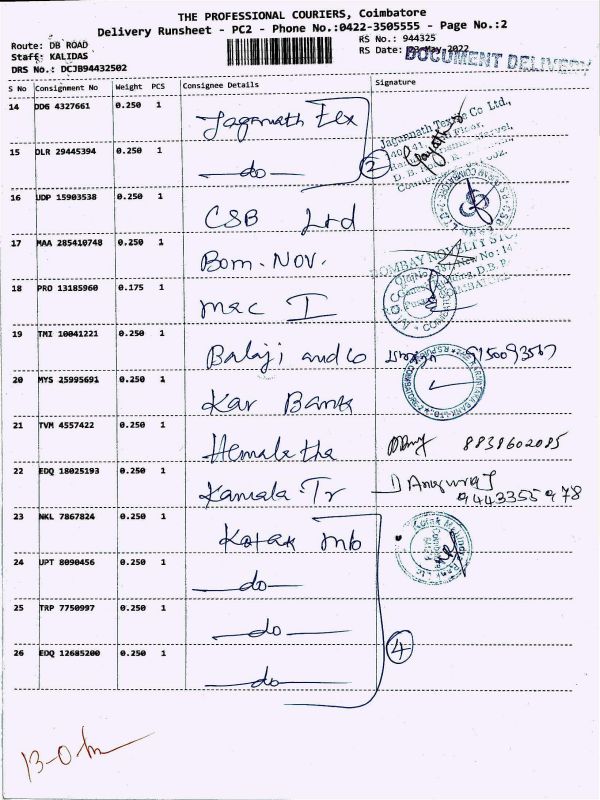 THE PROFESSIONAL COURIERS, Coimbatore
Delivery Runsheet - PC2 - Phone No.:0422-3505555 - Page No.:2
Route: DB ROAD
RS No.: 944325
Staff: KALIDAS
RS Date: 23-May-2022
DOCUMENT DELIVERY
DRS No.: DCJB94432502
S No Consignment No Weight PCS Consignee Details Signature
14 DDG 4327661 0.250 1 Jagannath Tex
Jagannath Tex Co Ltd.,
15 DLR 29445394 0.250 1 do
2
16 UDP 15903538 0.250 1 CSB Ltd
17 MAA 285410748 0.250 1 Bom. Nov.
BOMBAY NOVELTY
18 PRO 13185960 0.175 1 mac I
19 TMI 10041221 0.250 1 Balaji and Co
20 MYS 25995691 0.250 1 Kar Bank
21 TVM 4557422 0.250 1 Hemalatha 8838602085
22 EDQ 18025193 0.250 1 Kamala Tr
9443355978
23 NKL 7867824 0.250 1 Kotak mb
24 UPT 8090456 0.250 1 do
25 TRP 7750997 0.250 1 do
4
26 EDQ 12685200 0.250 1 do